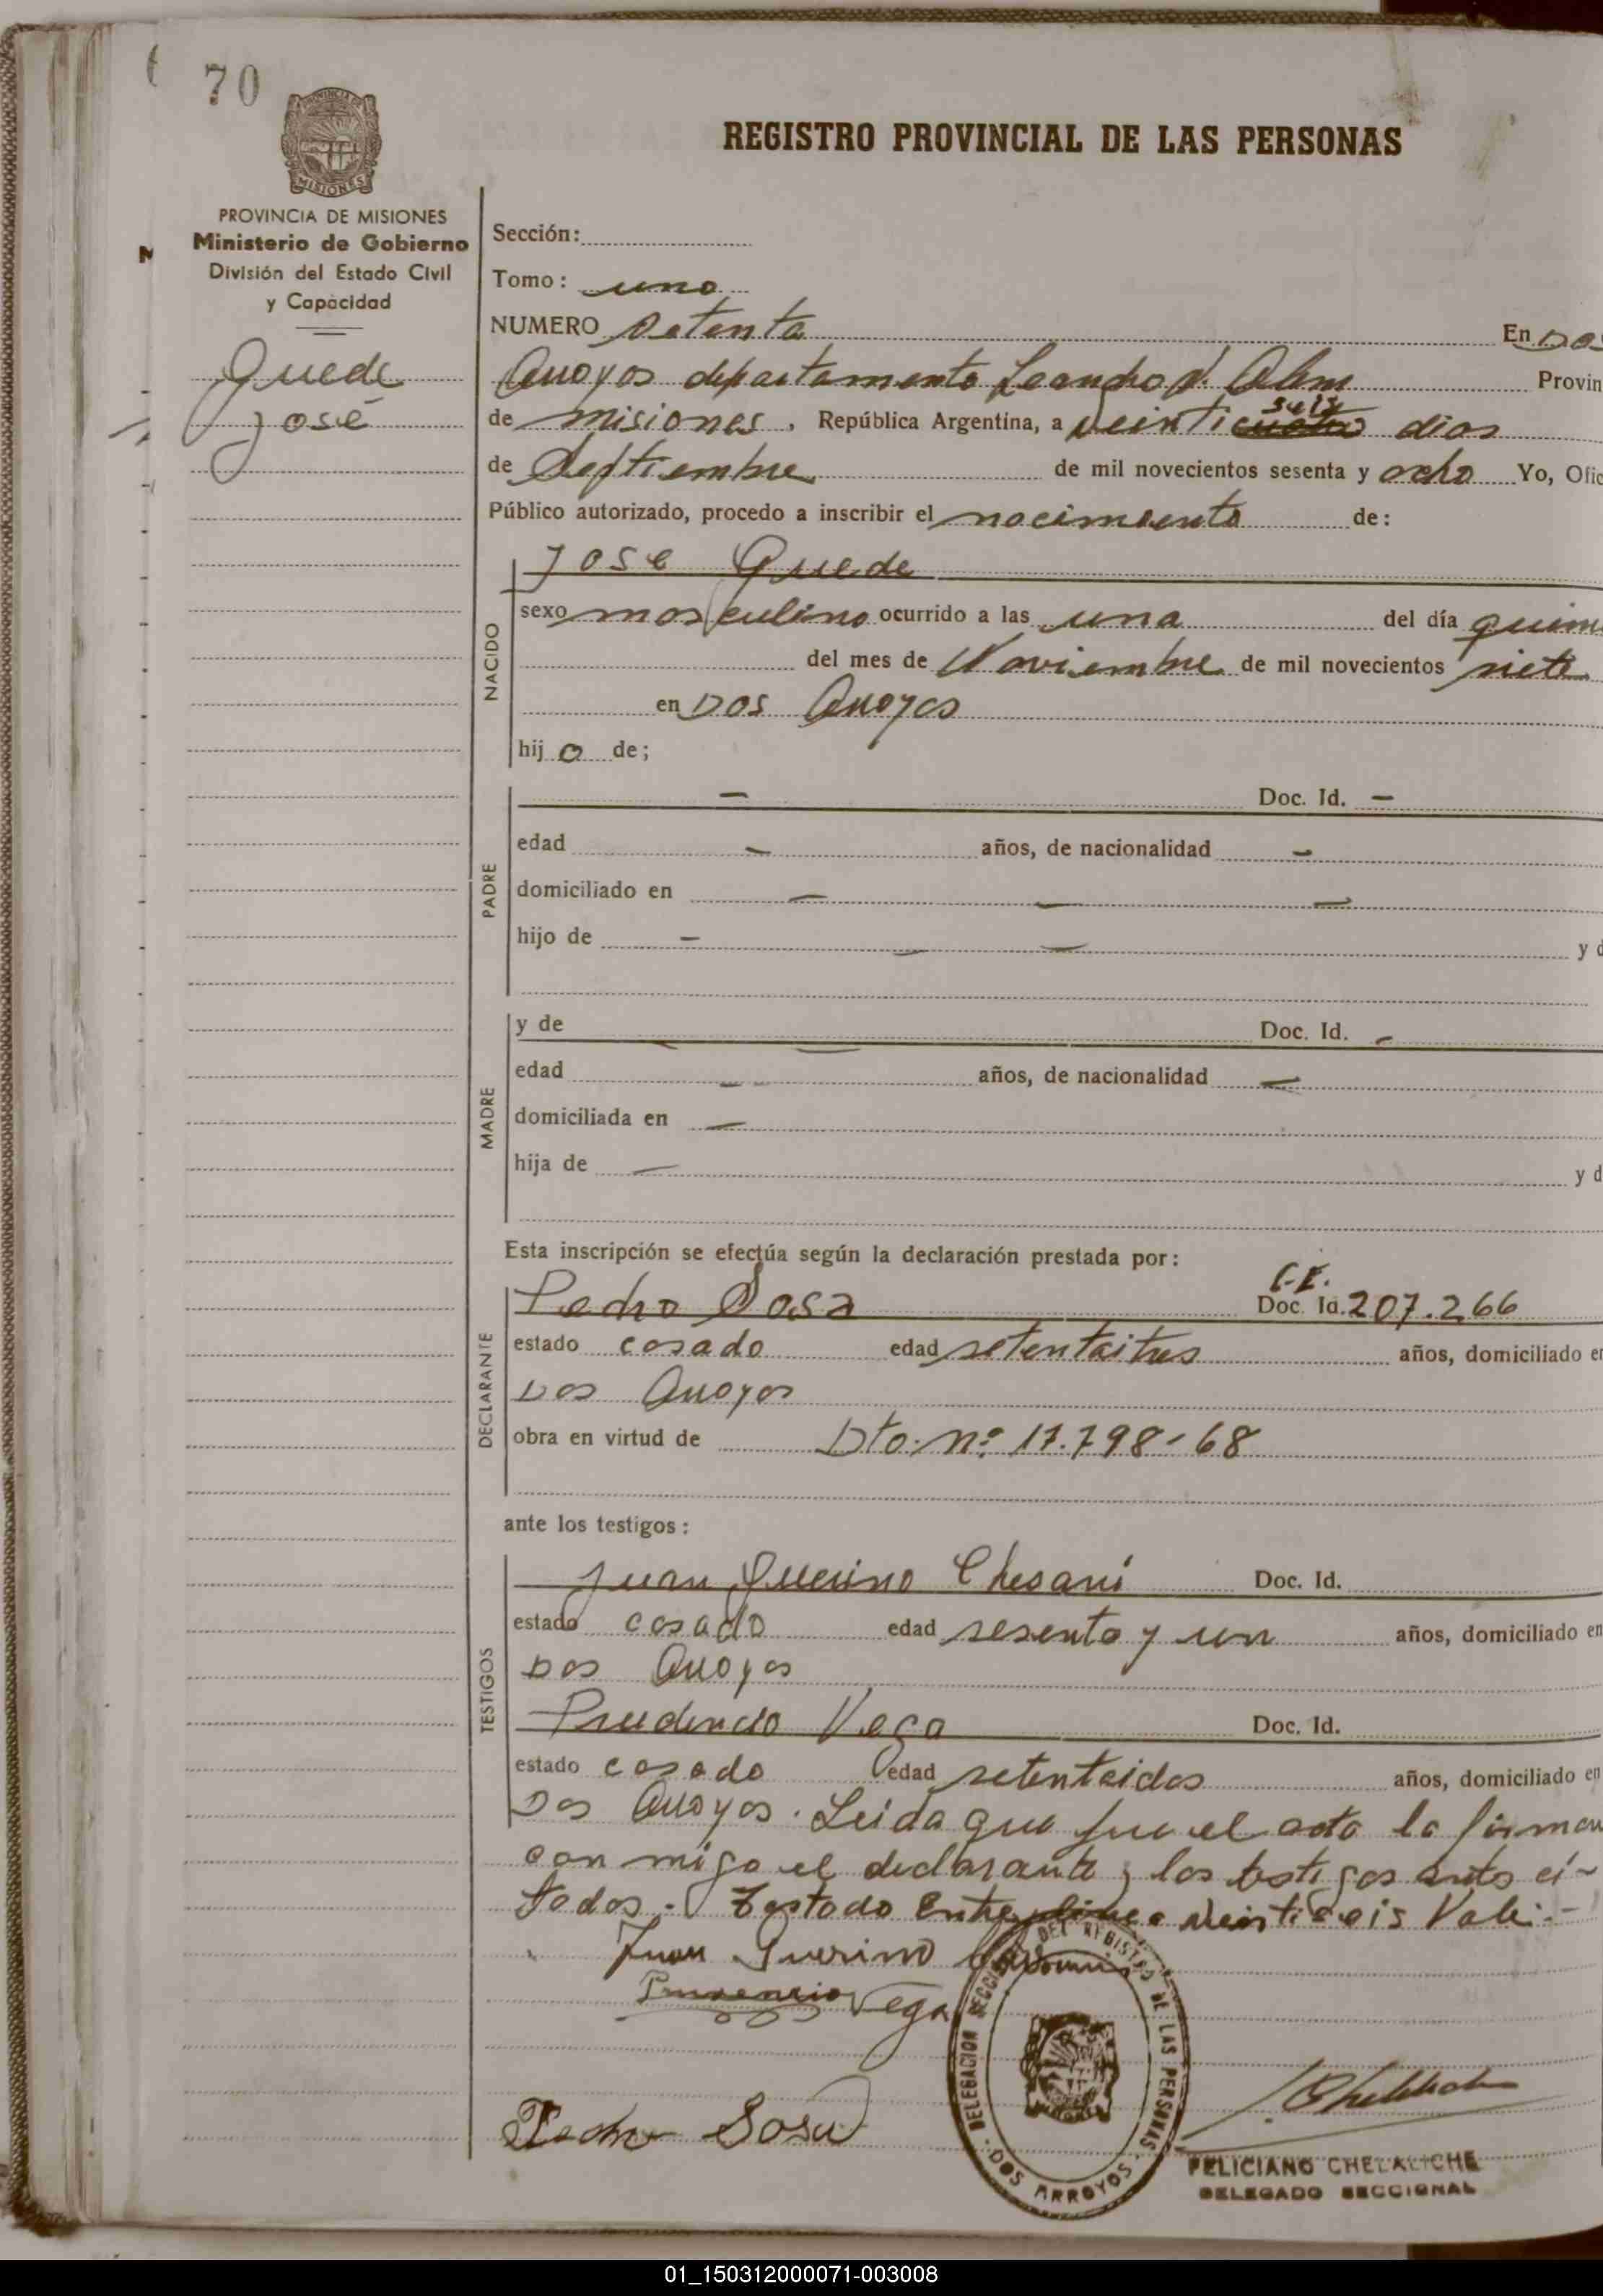 70
REGISTRO PROVINCIAL DE LAS PERSONAS
MISIONES
PROVINCIA DE MISIONES
Ministerio de Gobierno
División del Estado Civil
y Capacidad
Quede
José
Sección:
Tomo: uno
NUMERO Setenta En Dos
Arroyos departamento Leandro N. Alem Provin
de misiones, República Argentina, a veinticuatro seis dias
de Septiembre de mil novecientos sesenta y ocho Yo, Ofic
Público autorizado, procedo a inscribir el nacimiento de:
NACIDO
Jose Quede
sexo masculino ocurrido a las una del día quin
del mes de Noviembre de mil novecientos siete
en Dos Arroyos
hijo de;
PADRE
— Doc. Id. —
edad — años, de nacionalidad —
domiciliado en — — —
hijo de — — — y d
MADRE
y de — — Doc. Id. —
edad — años, de nacionalidad —
domiciliada en —
hija de — y d
Esta inscripción se efectúa según la declaración prestada por:
DECLARANTE
Pedro Sosa C.I. Doc. Id. 207.266
estado casado edad setentaitres años, domiciliado en
Dos Arroyos
obra en virtud de Dto. nº 17.798-68
ante los testigos:
TESTIGOS
Juan Querino Doc. Id.
estado casado edad sesenta y un años, domiciliado en
Dos Arroyos
Prudencio Vega Doc. Id.
estado casado edad setentaidos años, domiciliado en
Dos Arroyos. Leida que fue el acta la firman
con migo el declarante y los testigos antes ci-
tados.- Testado Entre linea Veintiseis Vale.-
Juan
Prudencio Vega
Pedro Sosa
DELEGACION SECCIONAL DEL REGISTRO DE LAS PERSONAS - DOS ARROYOS -
FELICIANO CHELALICHE
DELEGADO SECCIONAL
01_150312000071-003008